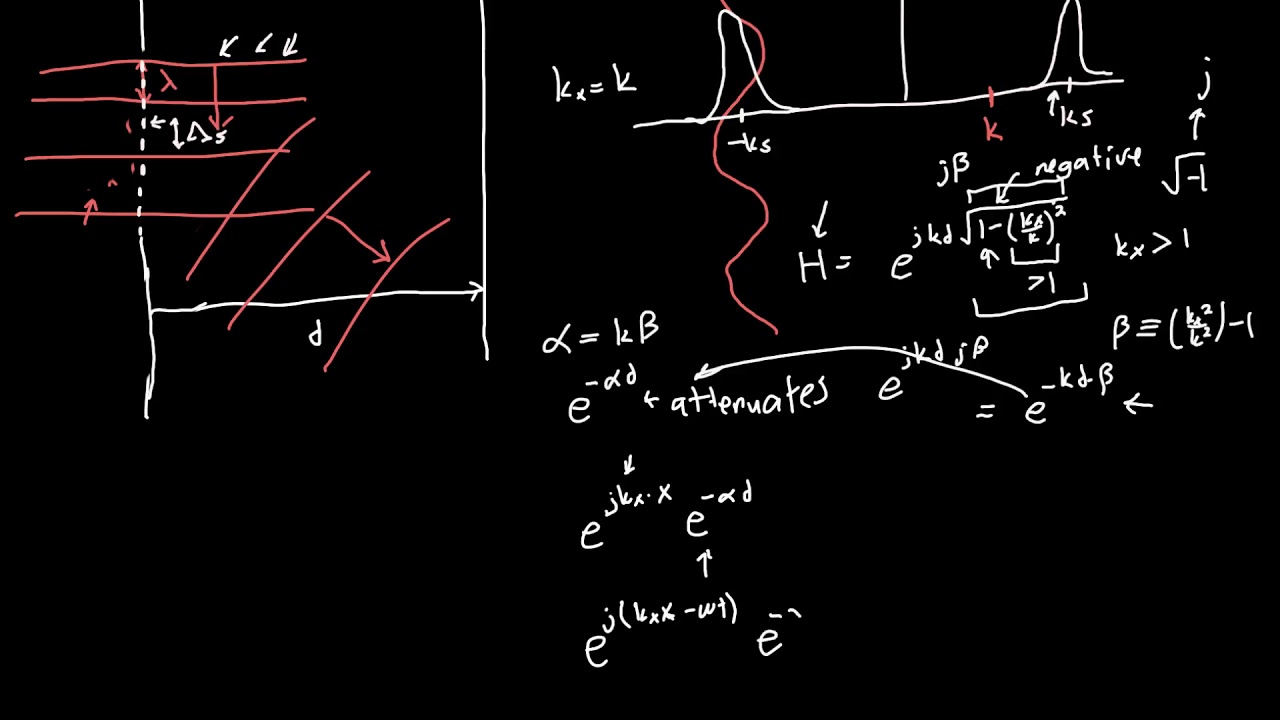 λ
Δs
d
kₓ = k
-ks
k
ks
j
√-1
jβ
negative
H = e^{jkd√(1-(kₓ/k)²)}
>1
kₓ > 1
β ≡ (kₓ²/k²) - 1
α = kβ
e^{-αd} ← attenuates
e^{jkd·jβ}
= e^{-kd·β} ←
e^{jkₓ·x} e^{-αd}
e^{j(kₓx - ωt)} e^{-